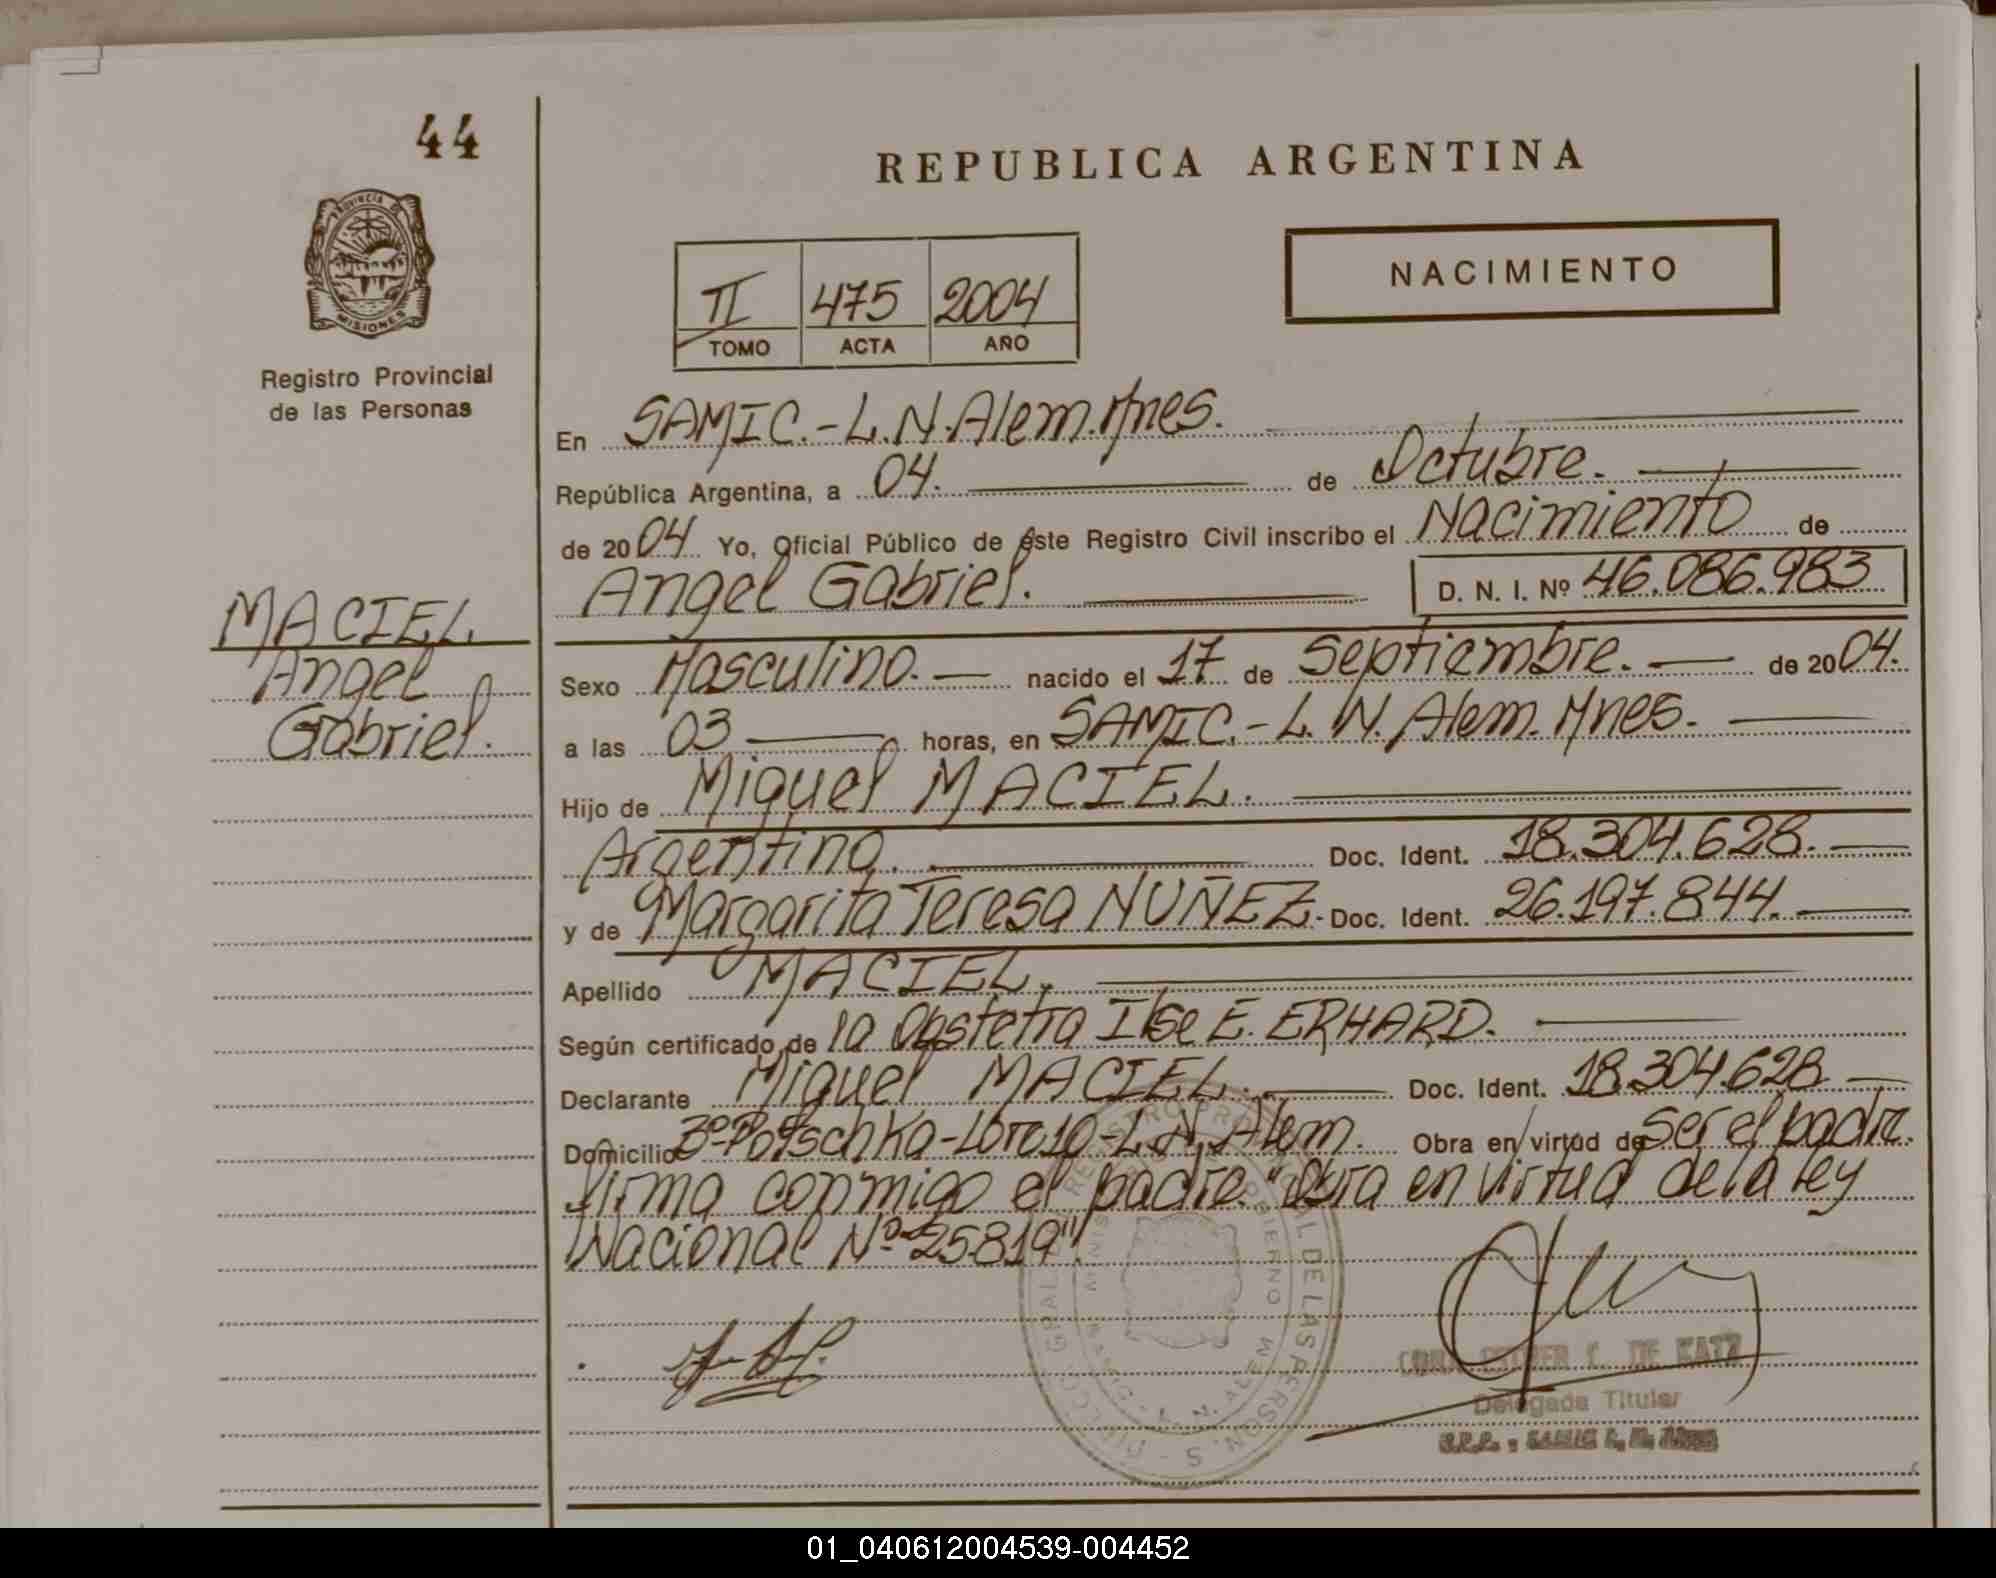 44
REPUBLICA ARGENTINA
PROVINCIA DE
MISIONES
Registro Provincial
de las Personas
NACIMIENTO
II 475 2004
TOMO ACTA AÑO
En SAMIC.-L.N.Alem.Mnes.
República Argentina, a 04. de Octubre.
de 2004 Yo, Oficial Público de este Registro Civil inscribo el Nacimiento de
Angel Gabriel. D. N. I. Nº 46.086.983
MACIEL
Angel
Gabriel.
Sexo Masculino. nacido el 17 de Septiembre. de 2004.
a las 03 horas, en SAMIC.-L.N.Alem.Mnes.
Hijo de Miguel MACIEL.
Argentino. Doc. Ident. 18.304.628.
y de Margarita Teresa NUÑEZ.- Doc. Ident. 26.197.844.
Apellido MACIEL.
Según certificado de la Obstetra Ilse E. ERHARD.
Declarante Miguel MACIEL. Doc. Ident. 18.304.628
Domicilio Bº-Potschka-Lote 10-L.N.Alem. Obra en virtud de ser el padre.
Firma conmigo el padre. "Obra en virtud de la ley
Nacional Nº 25819".
DE KATZ
Delegada Titular
01_040612004539-004452